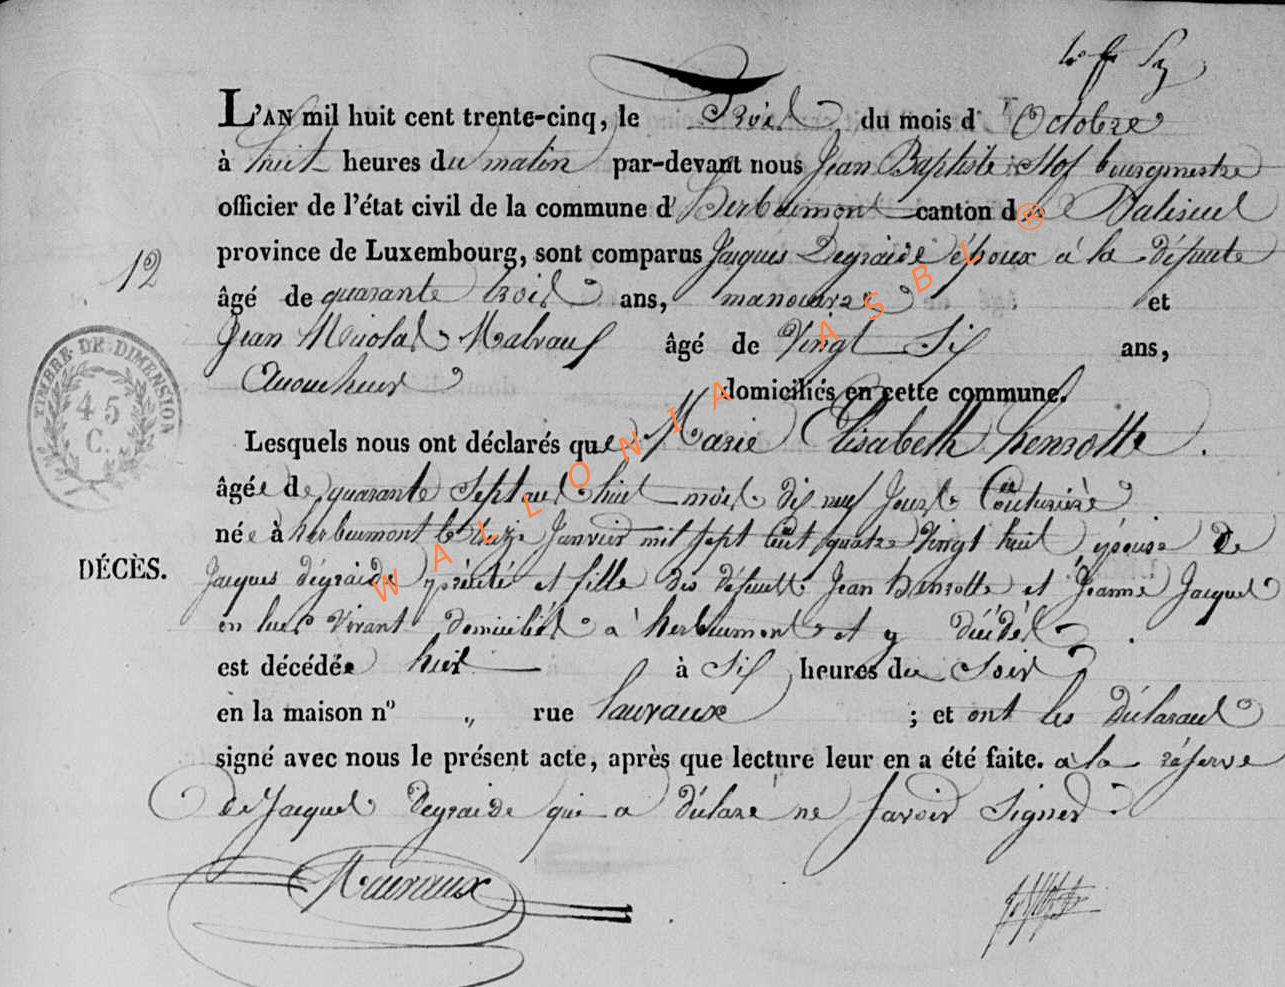 L'AN mil huit cent trente-cinq, le Trois du mois d'Octobre
à huit heures du matin par-devant nous Jean Baptiste bourgmestre
officier de l'état civil de la commune d'Herbeumont canton de Paliseul
province de Luxembourg, sont comparus Jacques Degraide époux à la défunte
12
âgé de quarante trois ans, manouvre et
Jean Nicolas Malvaux âgé de Vingt Six ans,
domiciliés en cette commune.
Lesquels nous ont déclarés que Marie Elisabeth henrotte
âgée de quarante Sept ans huit mois dix neuf Jours Couturière
née à herbeumont le Janvier mil sept Cent quatre Vingt huit épouse de
DÉCÈS.
Jacques dégraide précité et fille des défunts Jean henrotte et Jeanne Jacques
en leur Vivant domiciliés à herbeumont et y décédés
est décédée hier à Six heures du Soir
en la maison nº " rue Lauvaux ; et ont les déclarants
signé avec nous le présent acte, après que lecture leur en a été faite. à la réserve
de Jacques Degraide qui a déclaré ne Savoir Signer.
TIMBRE DE DIMENSION
45
C.
WALLONIA ASBL ®